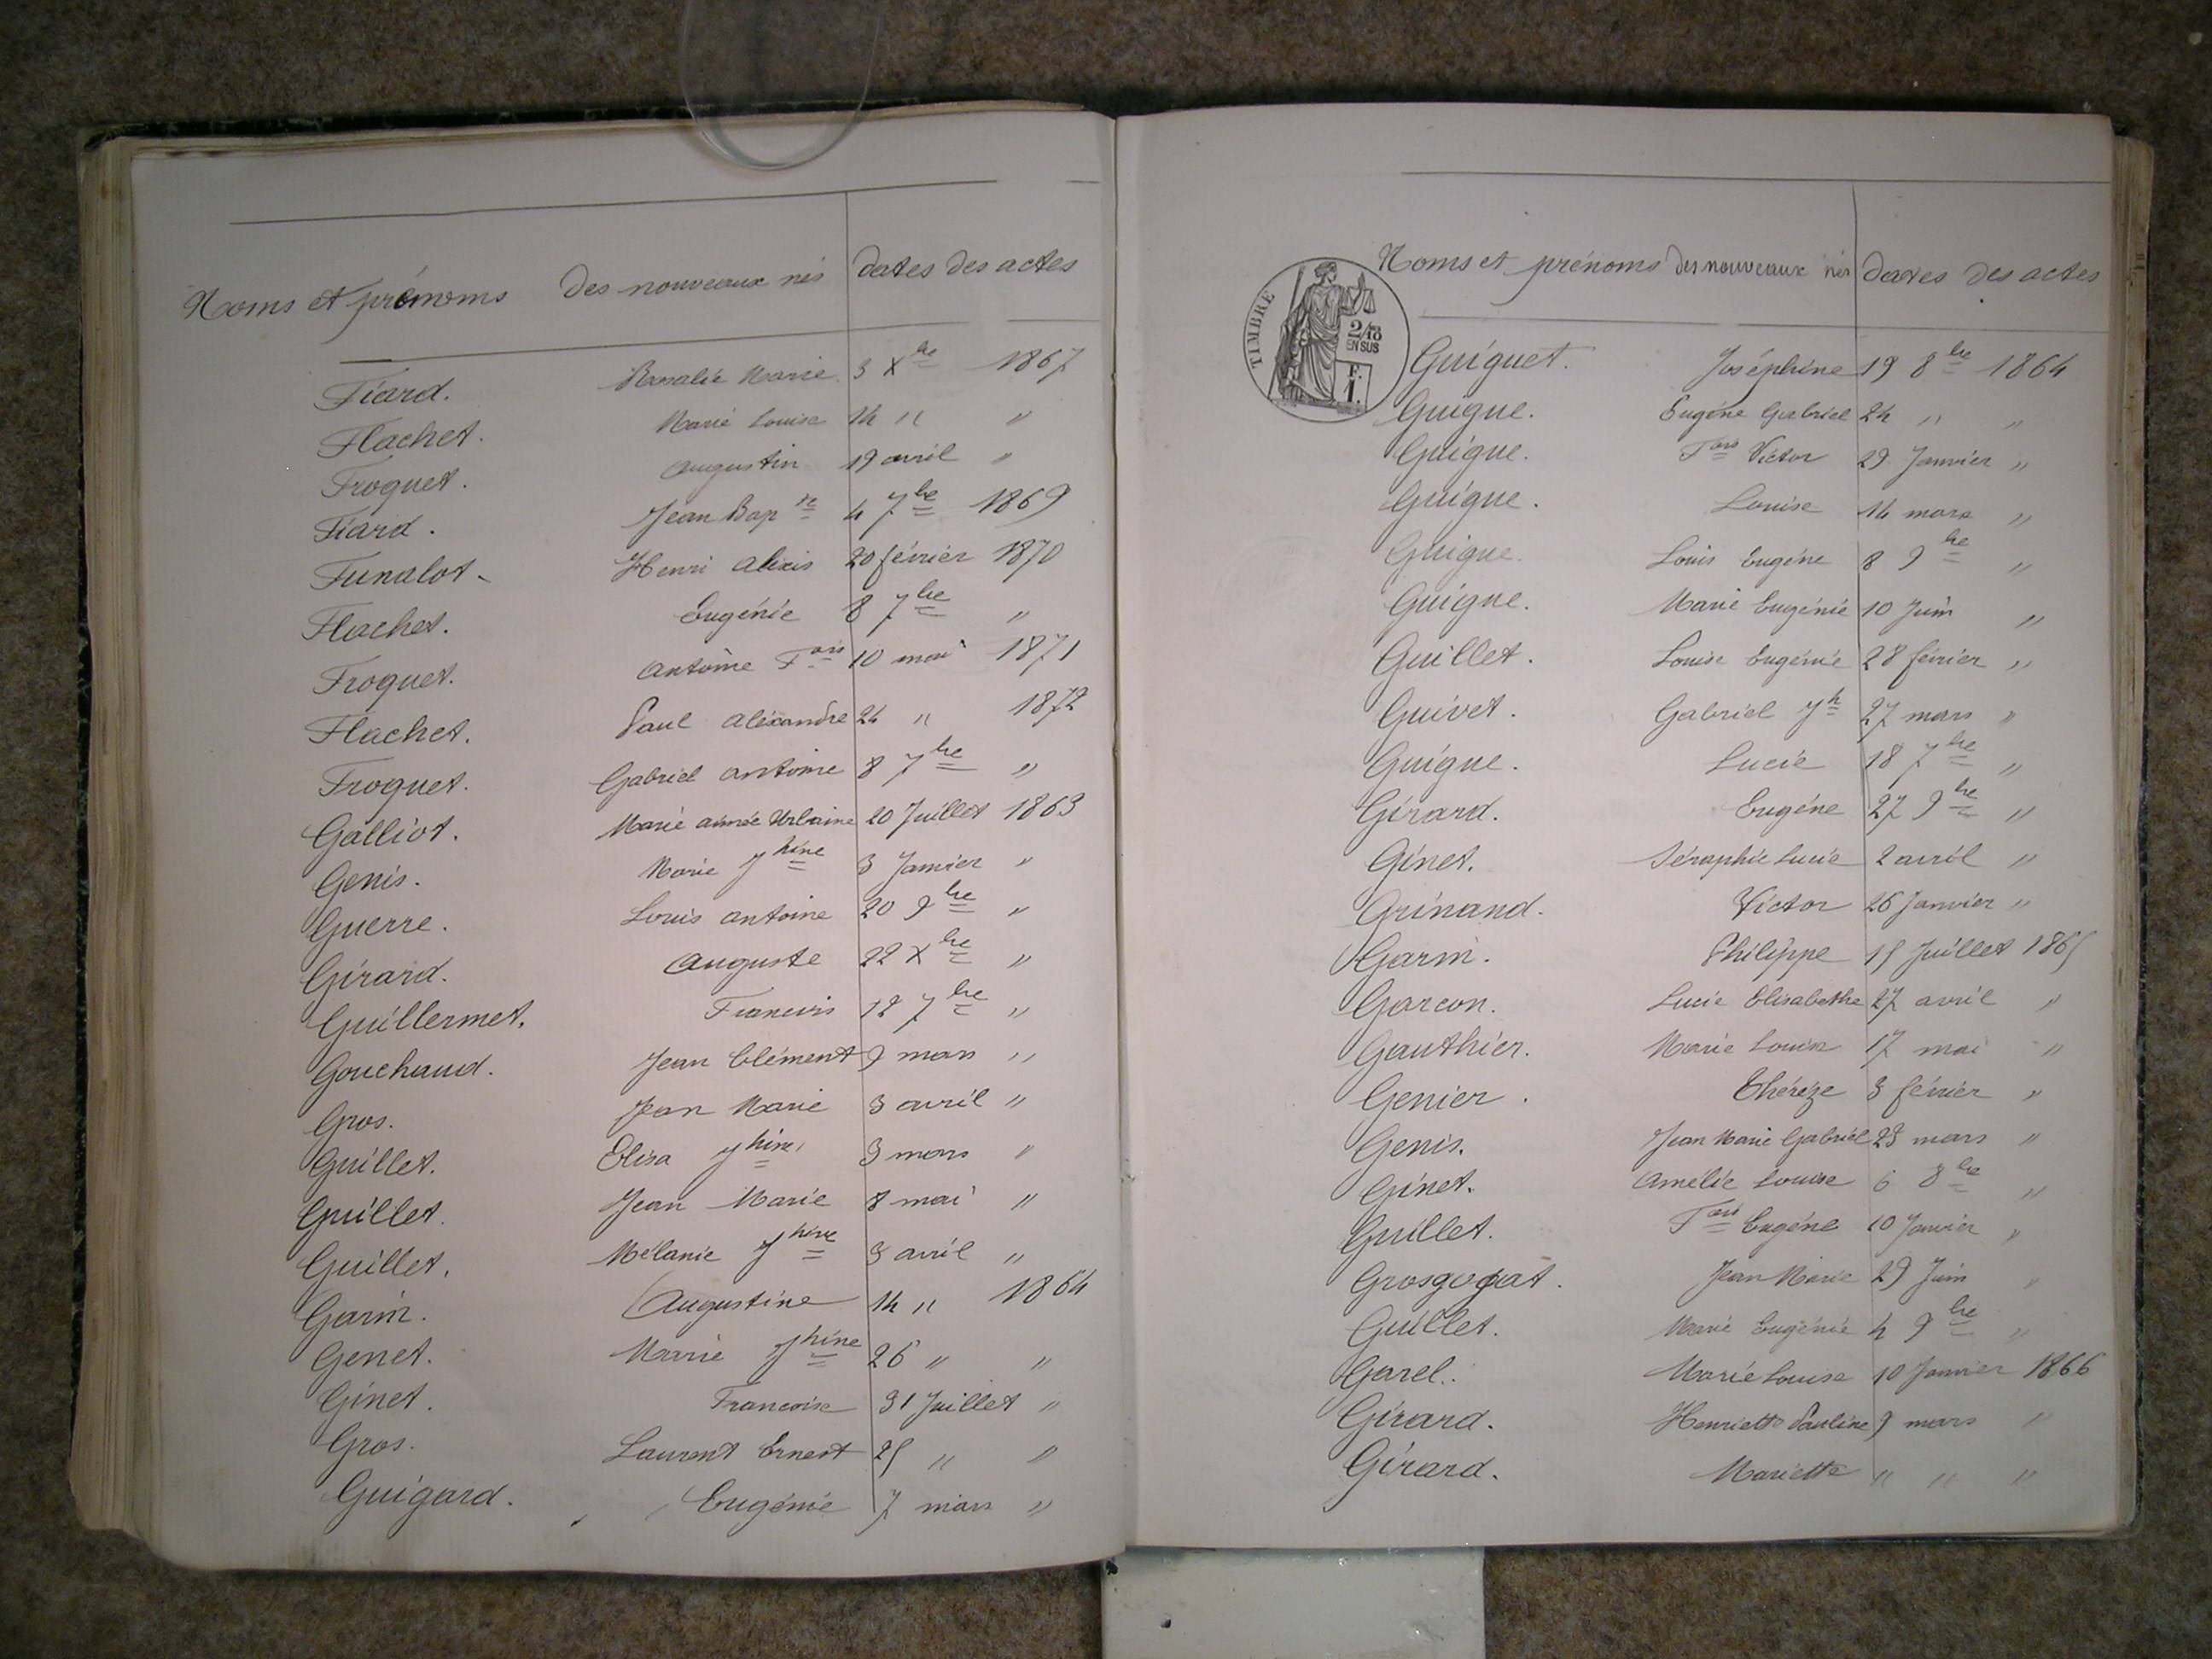 Noms et prénoms des nouveaux nés dates des actes
Fiard. Rosalie Marie 3 Xbre 1867
Flachet. Marie Louise 14 " "
Froquet. Augustin 19 avril "
Fiard. Jean Bapte 4 7bre 1869
Funalot Henri Alexis 20 février 1870
Flachet. Eugénie 8 7bre "
Froquet. Antoine Fois 10 mai 1871
Flachet. Paul Alexandre 24 " 1872
Froquet. Gabriel Antoine 8 7bre "
Galliot. Marie aimée Urbaine 20 Juillet 1863
Genis. Marie Jhine 3 Janvier "
Guerre. Louis Antoine 20 9bre "
Girard. Auguste 22 Xbre "
Guillermet. Francois 12 7bre "
Gouchaud. Jean Clément 9 mars "
Gros. Jean Marie 3 avril "
Guillet. Elisa Jhine 3 mars "
Guillet. Jean Marie 8 mai "
Guillet. Mélanie Jhine 3 avril "
Garin. Augustine 14 " 1864
Genet. Marie Jhine 26 " "
Ginet. Francoise 31 Juillet "
Gros. Laurent Ernest 25 " "
Guigard. Eugénie 7 mars "
Noms et prénoms des nouveaux nés dates des actes
TIMBRE
2/10
EN SUS
F.
1.
Guiguet. Joséphine 19 8bre 1864
Guigue. Eugéne Gabriel 24 " "
Guigue. Fois Victor 29 Janvier "
Guigue. Louise 14 mars "
Guigue. Louis Eugéne 8 9bre "
Guigue. Marie Eugénie 10 Juin "
Guillet. Louise Eugénie 28 février "
Guivet. Gabriel Jh 27 mars "
Guigue. Lucie 18 7bre "
Girard. Eugéne 27 9bre "
Ginet. Séraphie Lucie 2 avril "
Grinand. Victor 26 Janvier "
Garin. Philippe 15 Juillet 1865
Garcon. Lucie Elisabethe 27 avril "
Gauthier. Marie Louise 17 mai "
Genier. Théréze 3 février "
Genis. Jean Marie Gabriel 23 mars "
Ginet. Amélie Louise 6 8bre "
Guillet. Fois Eugéne 10 Janvier "
Grosgogat. Jean Marie 29 Juin "
Guillet. Marie Eugénie 4 9bre "
Garel. Marie Louise 10 Janvier 1866
Girard. Henriette Pauline 9 mars "
Girard. Mariette " " "